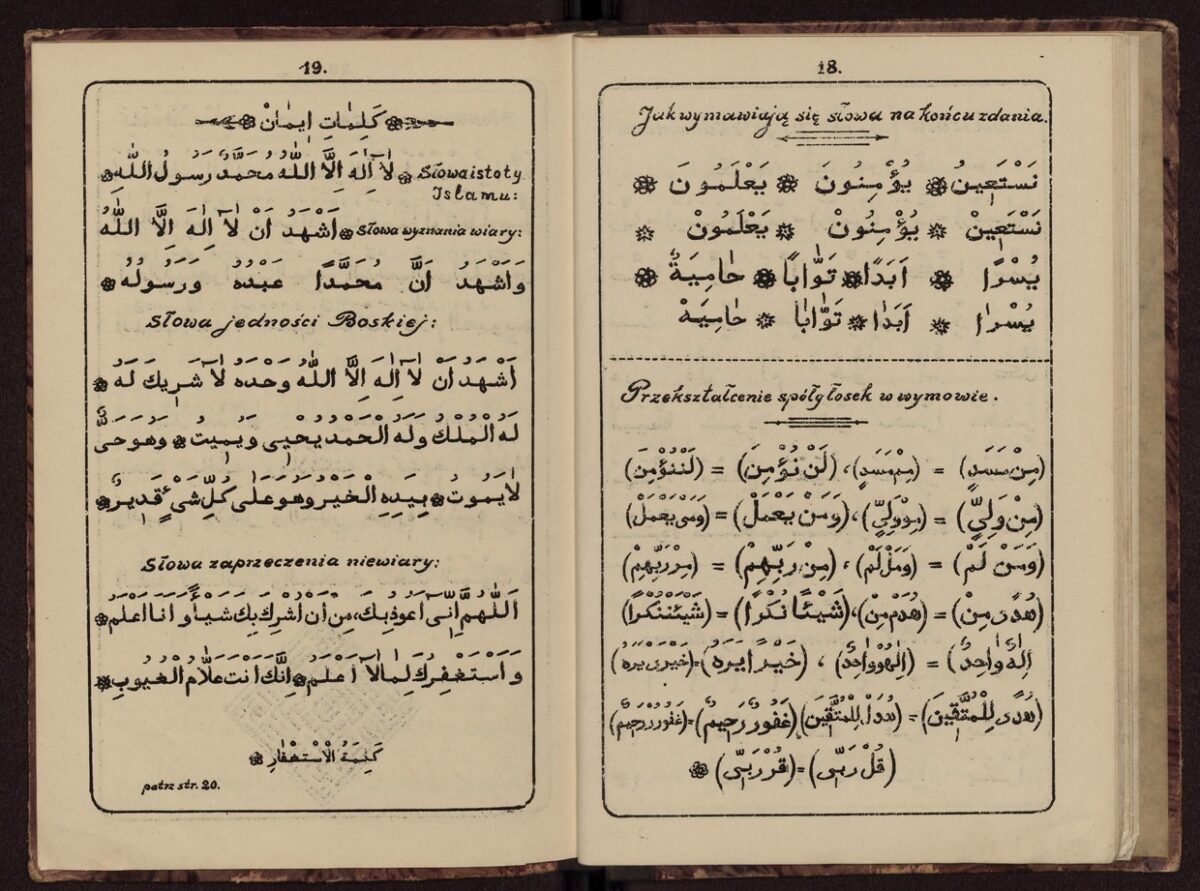 18.
Jak wymawiają się słowa na końcu zdania.
نَسْتَعِينُ ۞ يُؤْمِنُونَ ۞ يَعْلَمُونَ ۞
نَسْتَعِينْ ۞ يُؤْمِنُونْ ۞ يَعْلَمُونْ ۞
يُسْرًا ۞ اَبَدًا ۞ تَوَّابًا ۞ حٰامِيَةٌ ۞
يُسْرٰا ۞ اَبَدٰا ۞ تَوّٰابٰا ۞ حٰامِيَةْ
Przekształcenie spółgłosek w wymowie.
(مِنْ مَسَدٍ) = (مِمْ مَسَدٍ)، (لَنْ نُؤْمِنَ) = (لَنْنُؤْمِنَ)
(مِنْ وَلِيٍّ) = (مِوْوَلِيٍّ)، (وَمَنْ يَعْمَلْ) = (وَمَىْ يَعْمَلْ)
(وَمَنْ لَمْ) = (وَمَلْ لَمْ)، (مِنْ رَبِّهِمْ) = (مِرْ رَبِّهِمْ)
(هُدًى مِنْ) = (هُدَمْ مِنْ)، (شَيْئًا نُكْرًا) = (شَيْئَنْنُكْرًا)
(اِلٰهٌ وٰاحِدٌ) = (اِلٰهُوْ وٰاحِدٌ)، (خَيْرًا يَرَهُ) = (خَيْرَىْ يَرَهُ)
(هُدًى لِلْمُتَّقِينَ) = (هُدَلْ لِلْمُتَّقِينَ) (غَفُورٌ رَحِيمٌ) = (غَفُورُرْ رَحِيمٌ)
(قُلْ رَبّى) = (قُرْ رَبّى) ۞
19.
كَلِمٰاتِ اِيمٰانْ
Słowa istoty ۞ لٰا اِلٰهَ اِلَّا اللّٰهُ مُحَمَّدٌ رَسُولُ اللّٰهِ ۞
Islamu:
Słowa wyznania wiary: ۞ اَشْهَدُ اَنْ لٰا اِلٰهَ اِلَّا اللّٰهُ
وَاَشْهَدُ اَنَّ مُحَمَّدًا عَبْدُهُ وَرَسُولُهُ ۞
Słowa jedności Boskiej:
اَشْهَدُ اَنْ لٰا اِلٰهَ اِلَّا اللّٰهُ وَحْدَهُ لٰا شَرِيكَ لَهُ ۞
لَهُ الْمُلْكُ وَلَهُ الْحَمْدُ يُحْيِى وَيُمِيتُ ۞ وَهُوَ حَىٌّ
لٰا يَمُوتُ ۞ بِيَدِهِ الْخَيْرُ وَهُوَ عَلٰى كُلِّ شَىْءٍ قَدِيرٌ ۞
Słowa zaprzeczenia niewiary:
اَللّٰهُمَّ اِنّى اَعُوذُ بِكَ، مِنْ اَنْ اُشْرِكَ بِكَ شَيْأً وَ اَنَا اَعْلَمُ ۞
وَ اَسْتَغْفِرُكَ لِمٰا لٰا اَعْلَمُ ۞ اِنَّكَ اَنْتَ عَلّٰامُ الْغُيُوبِ ۞
كَلِمَةُ الْاِسْتِغْفٰارِ ۞
patrz str. 20.